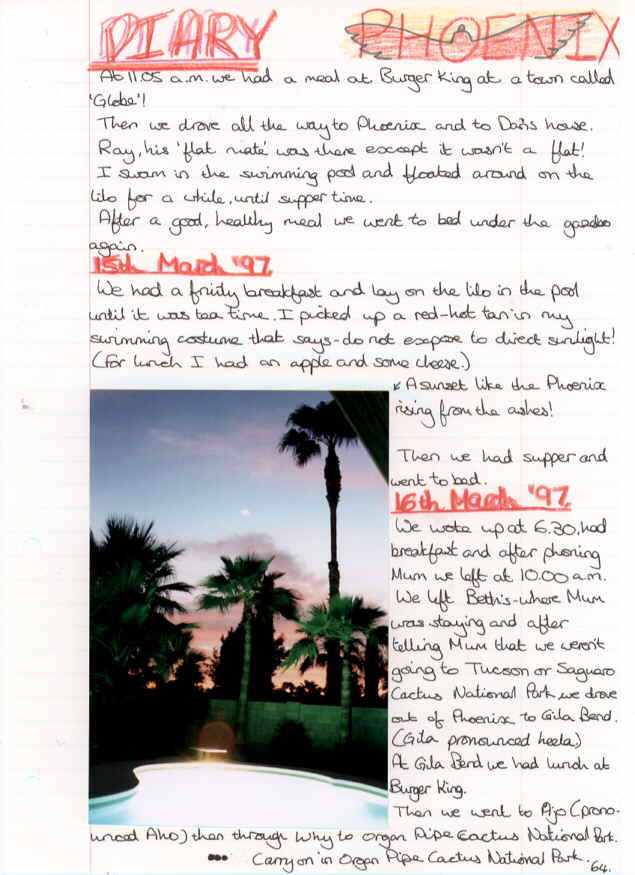 DIARY PHOENIX
At 11.05 a.m. we had a meal at Burger King at a town called
'Globe'!
Then we drove all the way to Phoenix and to Dan's house.
Ray, his 'flat mate' was there except it wasn't a flat!
I swam in the swimming pool and floated around on the
lilo for a while, until supper time.
After a good, healthy meal we went to bed under the gazebo
again.
15th March '97
We had a fruity breakfast and lay on the lilo in the pool
until it was tea time. I picked up a red-hot tan in my
swimming costume that says - do not expose to direct sunlight!
(For lunch I had an apple and some cheese.)
↙ A sunset like the Phoenix
rising from the ashes!
Then we had supper and
went to bed.
16th March '97
We woke up at 6.30, had
breakfast and after phoning
Mum we left at 10.00 a.m.
We left Beth's - where Mum
was staying and after
telling Mum that we weren't
going to Tucson or Saguaro
Cactus National Park we drove
out of Phoenix to Gila Bend.
(Gila pronounced heela)
At Gila Bend we had lunch at
Burger King.
Then we went to Ajo (prono-
unced Aho) then through Why to Organ Pipe Cactus National Park.
Carry on in Organ Pipe Cactus National Park.
64.